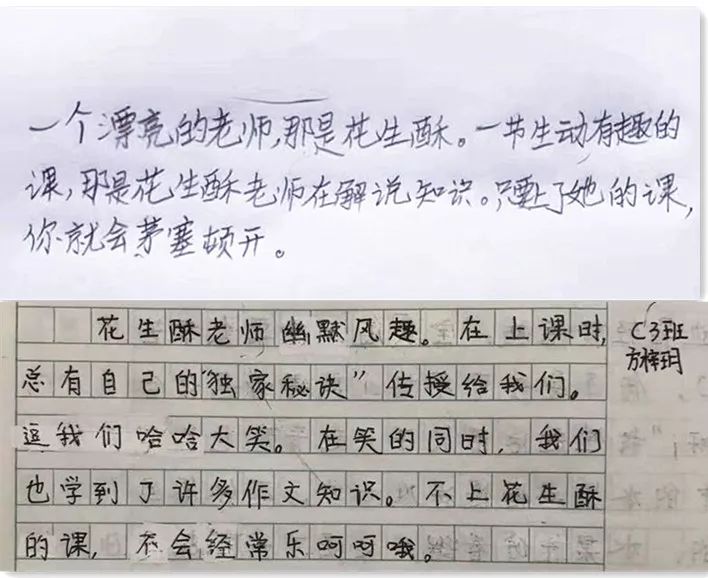 一个漂亮的老师,那是花生酥。一节生动有趣的
课,那是花生酥老师在解说知识。只要上了她的课,
你就会茅塞顿开。
花生酥老师幽默风趣。在上课时,
总有自己的“独家秘诀”传授给我们。
逗我们哈哈大笑。在笑的同时,我们
也学到了许多作文知识。不上花生酥
的课,不会经常乐呵呵哦。
C3班
方梓玥